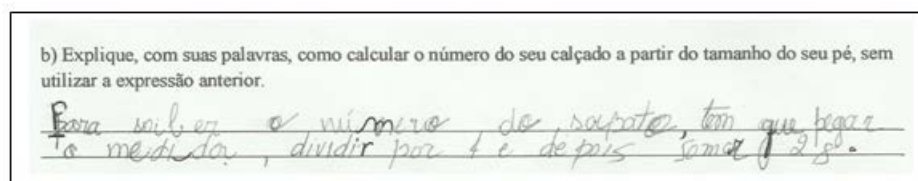 b) Explique, com suas palavras, como calcular o número do seu calçado a partir do tamanho do seu pé, sem
utilizar a expressão anterior.
Para saber o número do sapato, tem que pegar
a medida, dividir por 4 e depois somar 28.